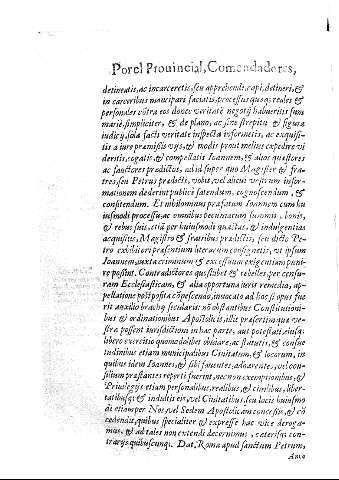 Porel Prouincial, Comendadores,
detineatis, ac incarceretis, seu apprehendi, capi, detineri, &
in carceribus mancipari faciatis, processus quoq; reales &
personales cõtra eos donec veritatẽ negotij habueritis sum
mariè, simpliciter, & de plano, ac sine strepitu & figura
iudicij, sola facti veritate inspecta informetis, ac exquisi-
tis a iure præmissis vijs, & modis prout melius expedire vi
deritis, cogatis, & compellatis Ioannem, & alios quæstores
ac fanctores prædictos, ad id super quo Magister & fra-
tres, seu Petrus prædicti, vobis, vel alicui vestrum infor-
mationem dederint publicè fatendum, cognoscendum, &
confitendum. Et nihilominus præfatum Ioannem cum hu
iusmodi processu, ac omnibus pecuniarum summis, bonis,
& rebus suis, etiã per huiusmodi quæstus, & indulgentias
acquisitis, Magistro & fratribus prædictis, seu dicto Pe-
tro exhibitori præsentium literarum consignetis, vt ipsum
Ioannem, iuxta criminum & excessuum exigentiam puni-
re possint. Contradictores quoslibet & rebelles, per censu-
ram Ecclesiasticam, & alia opportuna iuris remedia, ap-
pellatione postposita cõpescendo, inuocato ad hoc si opus fue
rit auxilio brachij secularis: nõ obstantibus Constitutioni-
bus & ordinationibus Apostolicis, illis præsertim quæ ve-
stræ possent iurisdictioni in hac parte, aut potestati, eiusq;
libero exercitio quomodolibet obuiare, ac statutis, & consue
tudinibus etiam municipalibus Ciuitatum, & locorum, in
quibus idem Ioannes, & sibi fauentes, adhærentes, vel con-
silium præstantes reperti fuerint, necnon exemptionibus, &
Priuilegijs etiam personalibus, realibus, & ciuilibus, liber-
tatibusq; & indultis eis, vel Ciuitatibus, seu locis huiusmo
di etiam per Nos, vel Sedem Apostolicam concessis, & cõ
cedendis, quibus specialiter & expresse hac vice deroga-
mus, & ad tales non extendi decernimus, cæterisq; con-
trarijs quibuscunq;. Dat. Romæ apud sanctum Petrum,